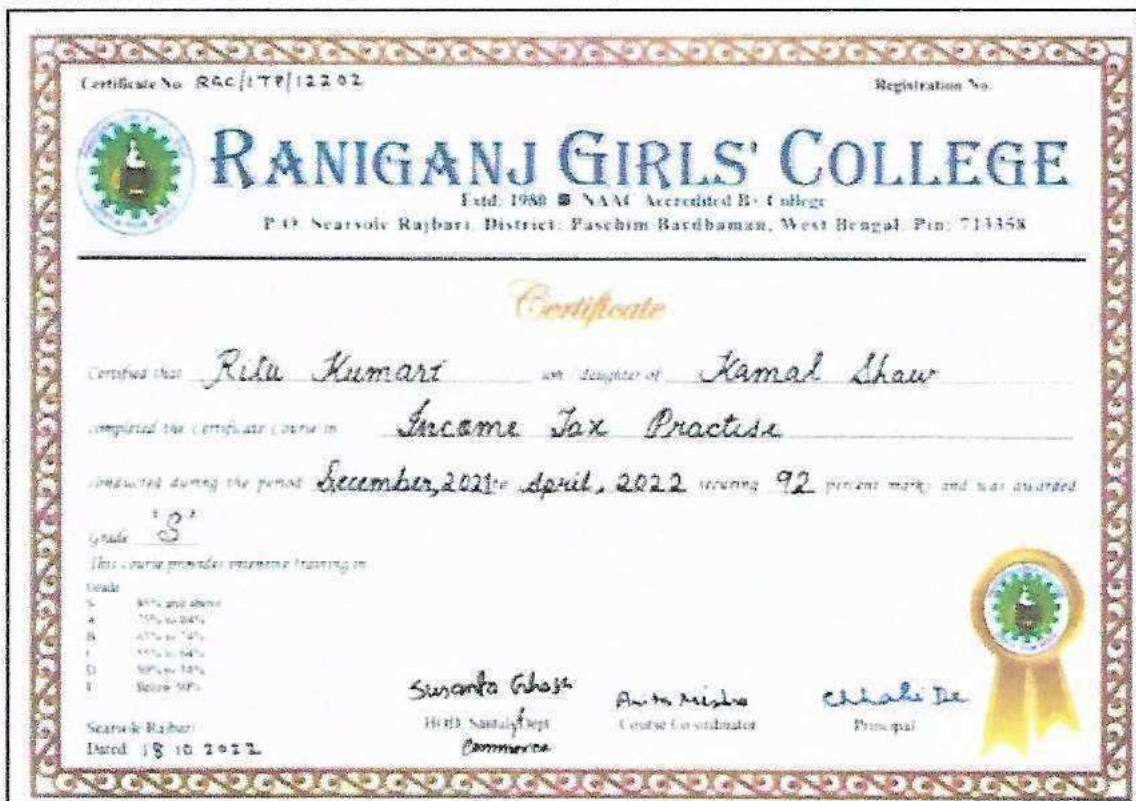 Certificate No. RGC/ITP/12202 Registration No.
RANIGANJ GIRLS' COLLEGE
Estd. 1980 NAAC Accredited B+ College
P.O. Searsole Rajbari, District: Paschim Bardhaman, West Bengal, Pin: 713358
Certificate
Certified that Ritu Kumari son / daughter of Kamal Shaw
completed the Certificate Course in Income Tax Practise
conducted during the period December, 2021 to April, 2022 securing 92 percent marks and was awarded
Grade "S"
This course provides intensive training in
Grade
S 85% and above
A 75% to 84%
B 65% to 74%
C 55% to 64%
D 50% to 54%
F Below 50%
Susanta Ghosh Chhabi De
HOD, Santali Dept Course Co-ordinator Principal
Commerce
Searsole Rajbari
Dated 18 10 2022